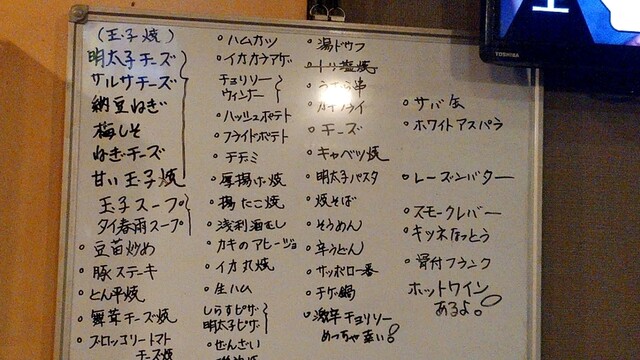 (玉子焼)
明太子チーズ
サルサチーズ
納豆ねぎ
梅しそ
ねぎチーズ
甘い玉子焼
玉子スープ
タイ春雨スープ
・豆苗炒め
・豚ステーキ
・とん平焼
・舞茸チーズ焼
・ブロッコリートマト
チーズ焼
・ハムカツ
・イカカラアゲ
チョリソー
ウィンナー
・ハッシュポテト
・フライドポテト
・チヂミ
・厚揚げ焼
・揚たこ焼
・浅利酒むし
・カキのアヒージョ
・イカ丸焼
・生ハム
しらすピザ
明太子ピザ
・ぜんざい
・湯ドウフ
・トリ塩焼
・チーズ
・キャベツ焼
・明太子パスタ
・焼そば
・そうめん
・辛うどん
・サッポロ一番
・チゲ鍋
・激辛チョリソー
めっちゃ辛い!
・サバ缶
・ホワイトアスパラ
・レーズンバター
・スモークレバー
・キツネなっとう
・骨付フランク
ホットワイン
あるよ!
TOSHIBA